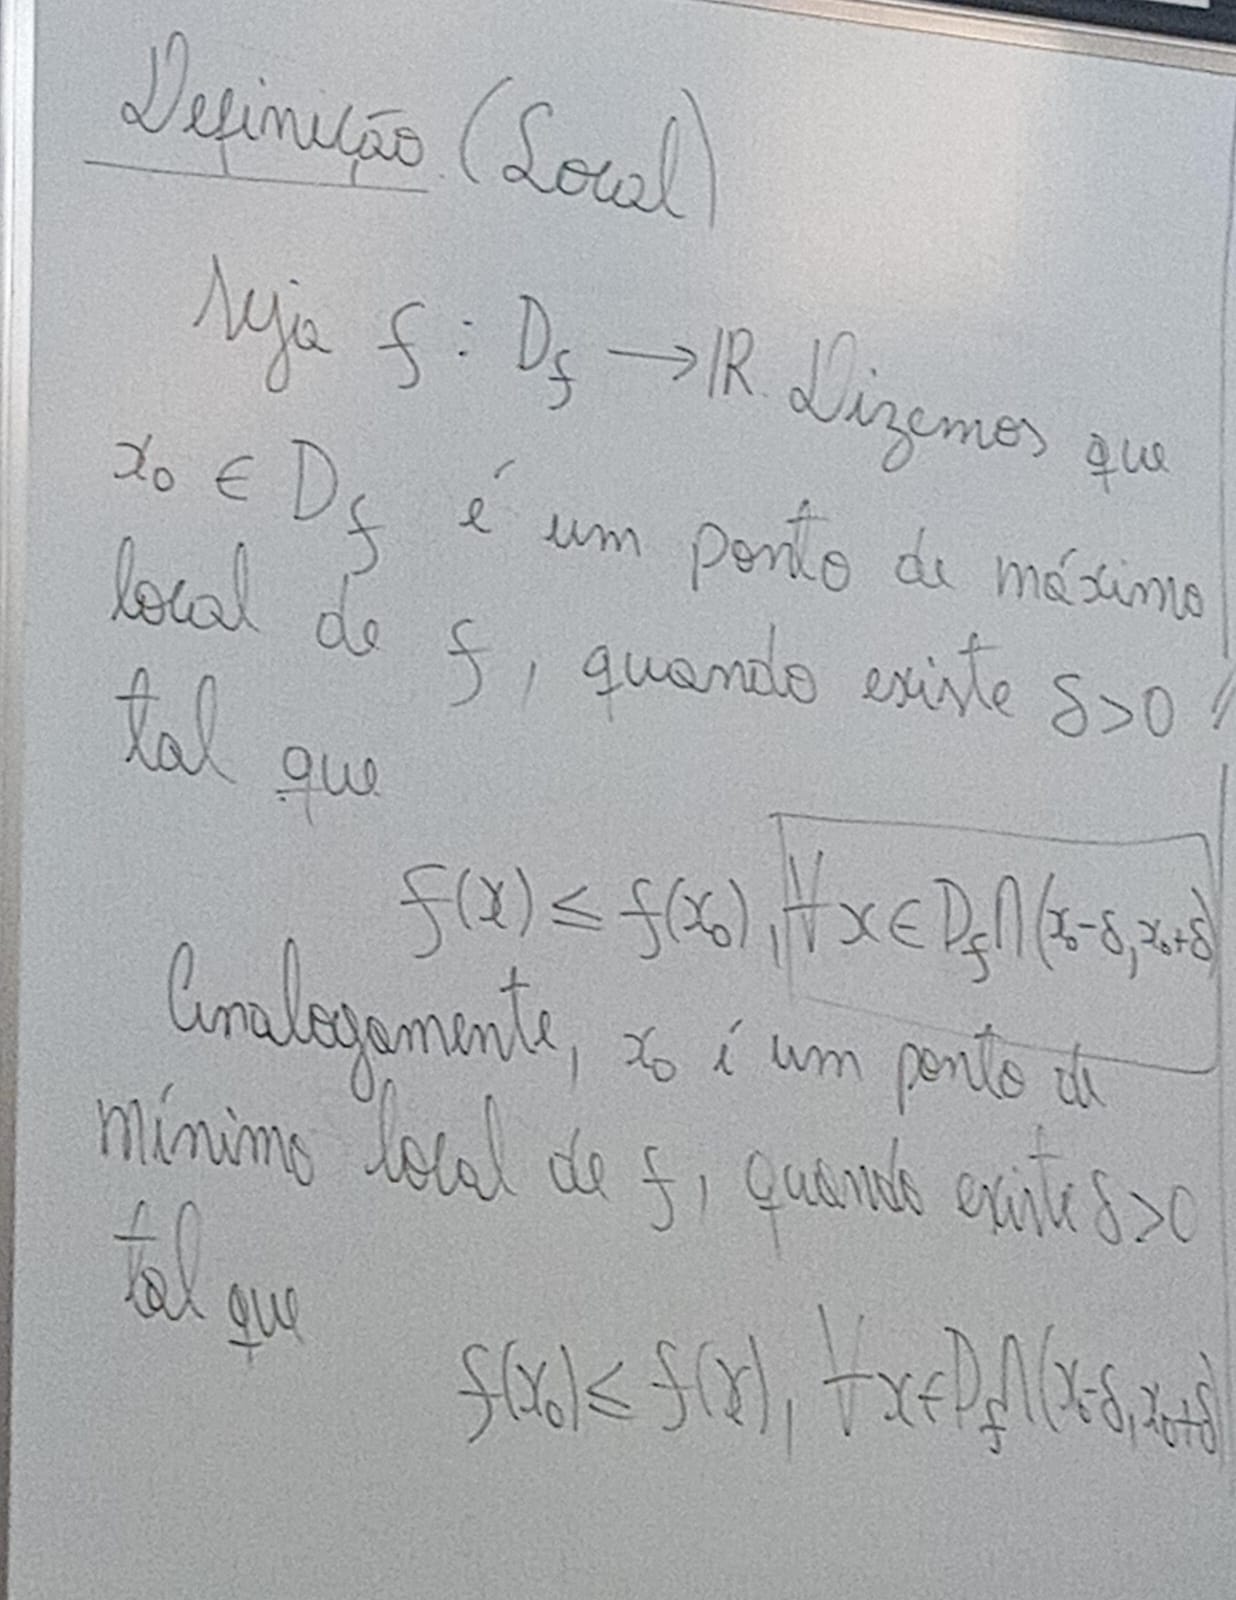 Definição (Local)
Seja f : D_f → ℝ. Dizemos que
x₀ ∈ D_f é um ponto de máximo
local de f, quando existe δ>0
tal que
f(x) ≤ f(x₀), ∀x ∈ D_f ∩ (x₀-δ, x₀+δ)
Analogamente, x₀ é um ponto de
mínimo local de f, quando existe δ>0
tal que
f(x₀) ≤ f(x), ∀x ∈ D_f ∩ (x₀-δ, x₀+δ)